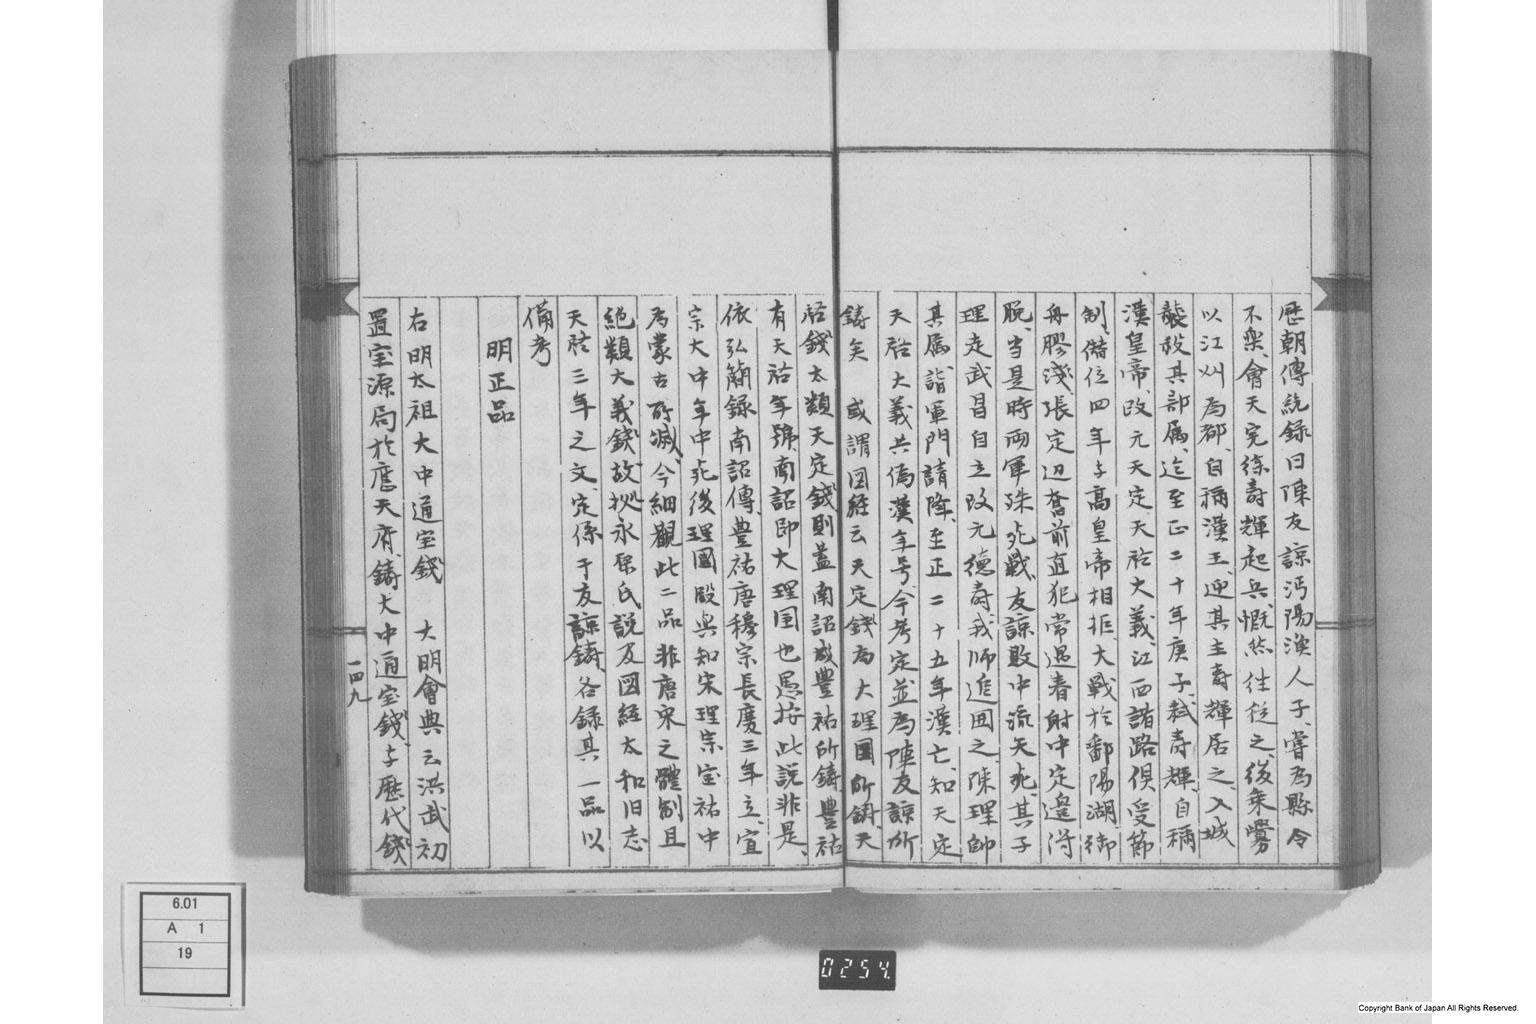 歴朝傳統録曰陳友諒沔陽漁人子、嘗為縣令
不樂、會天完徐壽輝起兵、慨然往從之、後乗釁
以江州為都、自稱漢王、迎其主壽輝居之、入城
襲殺其部属、迄至正二十年庚子、弑壽輝、自稱
漢皇帝、改元天定、天啓大義、江西諸路倶受節
制、僣位四年与高皇帝相拒大戰於鄱陽湖、御
舟膠淺、張定辺奮前直犯常遇春射中定邊得
脱、当是時両軍殊死戰、友諒敗中流矢死、其子
理走武昌自立改元德壽、我師進囲之、陳理帥
其属、詣軍門請降、至正二十五年漢亡、知天定
天啓大義共偽漢年号、今考定並為陳友諒所
鋳矣 或謂図経云天定錢為大理國所鋳、天
啓錢太類天定錢則蓋南詔成豊祐所鋳、豊祐
有天啓年號、南詔即大理国也愚按此説非是、
依弘簡録南詔傳、豊祐唐穆宗長慶三年立、宣
宗大中年中死後理國段與知宋理宗宝祐中
為蒙古所滅、今細觀此二品非唐宋之體制且
絶類大義錢、故拠永保氏説及図経太和旧志
天啓三年之文定係于友諒鋳、各録其一品以
備考
明正品
右明太祖大中通宝錢 大明會典云洪武初
置宝源局於應天府、鋳大中通宝錢、与歴代錢
一四九
6.01
A 1
19
0254
Copyright Bank of Japan All Rights Reserved.